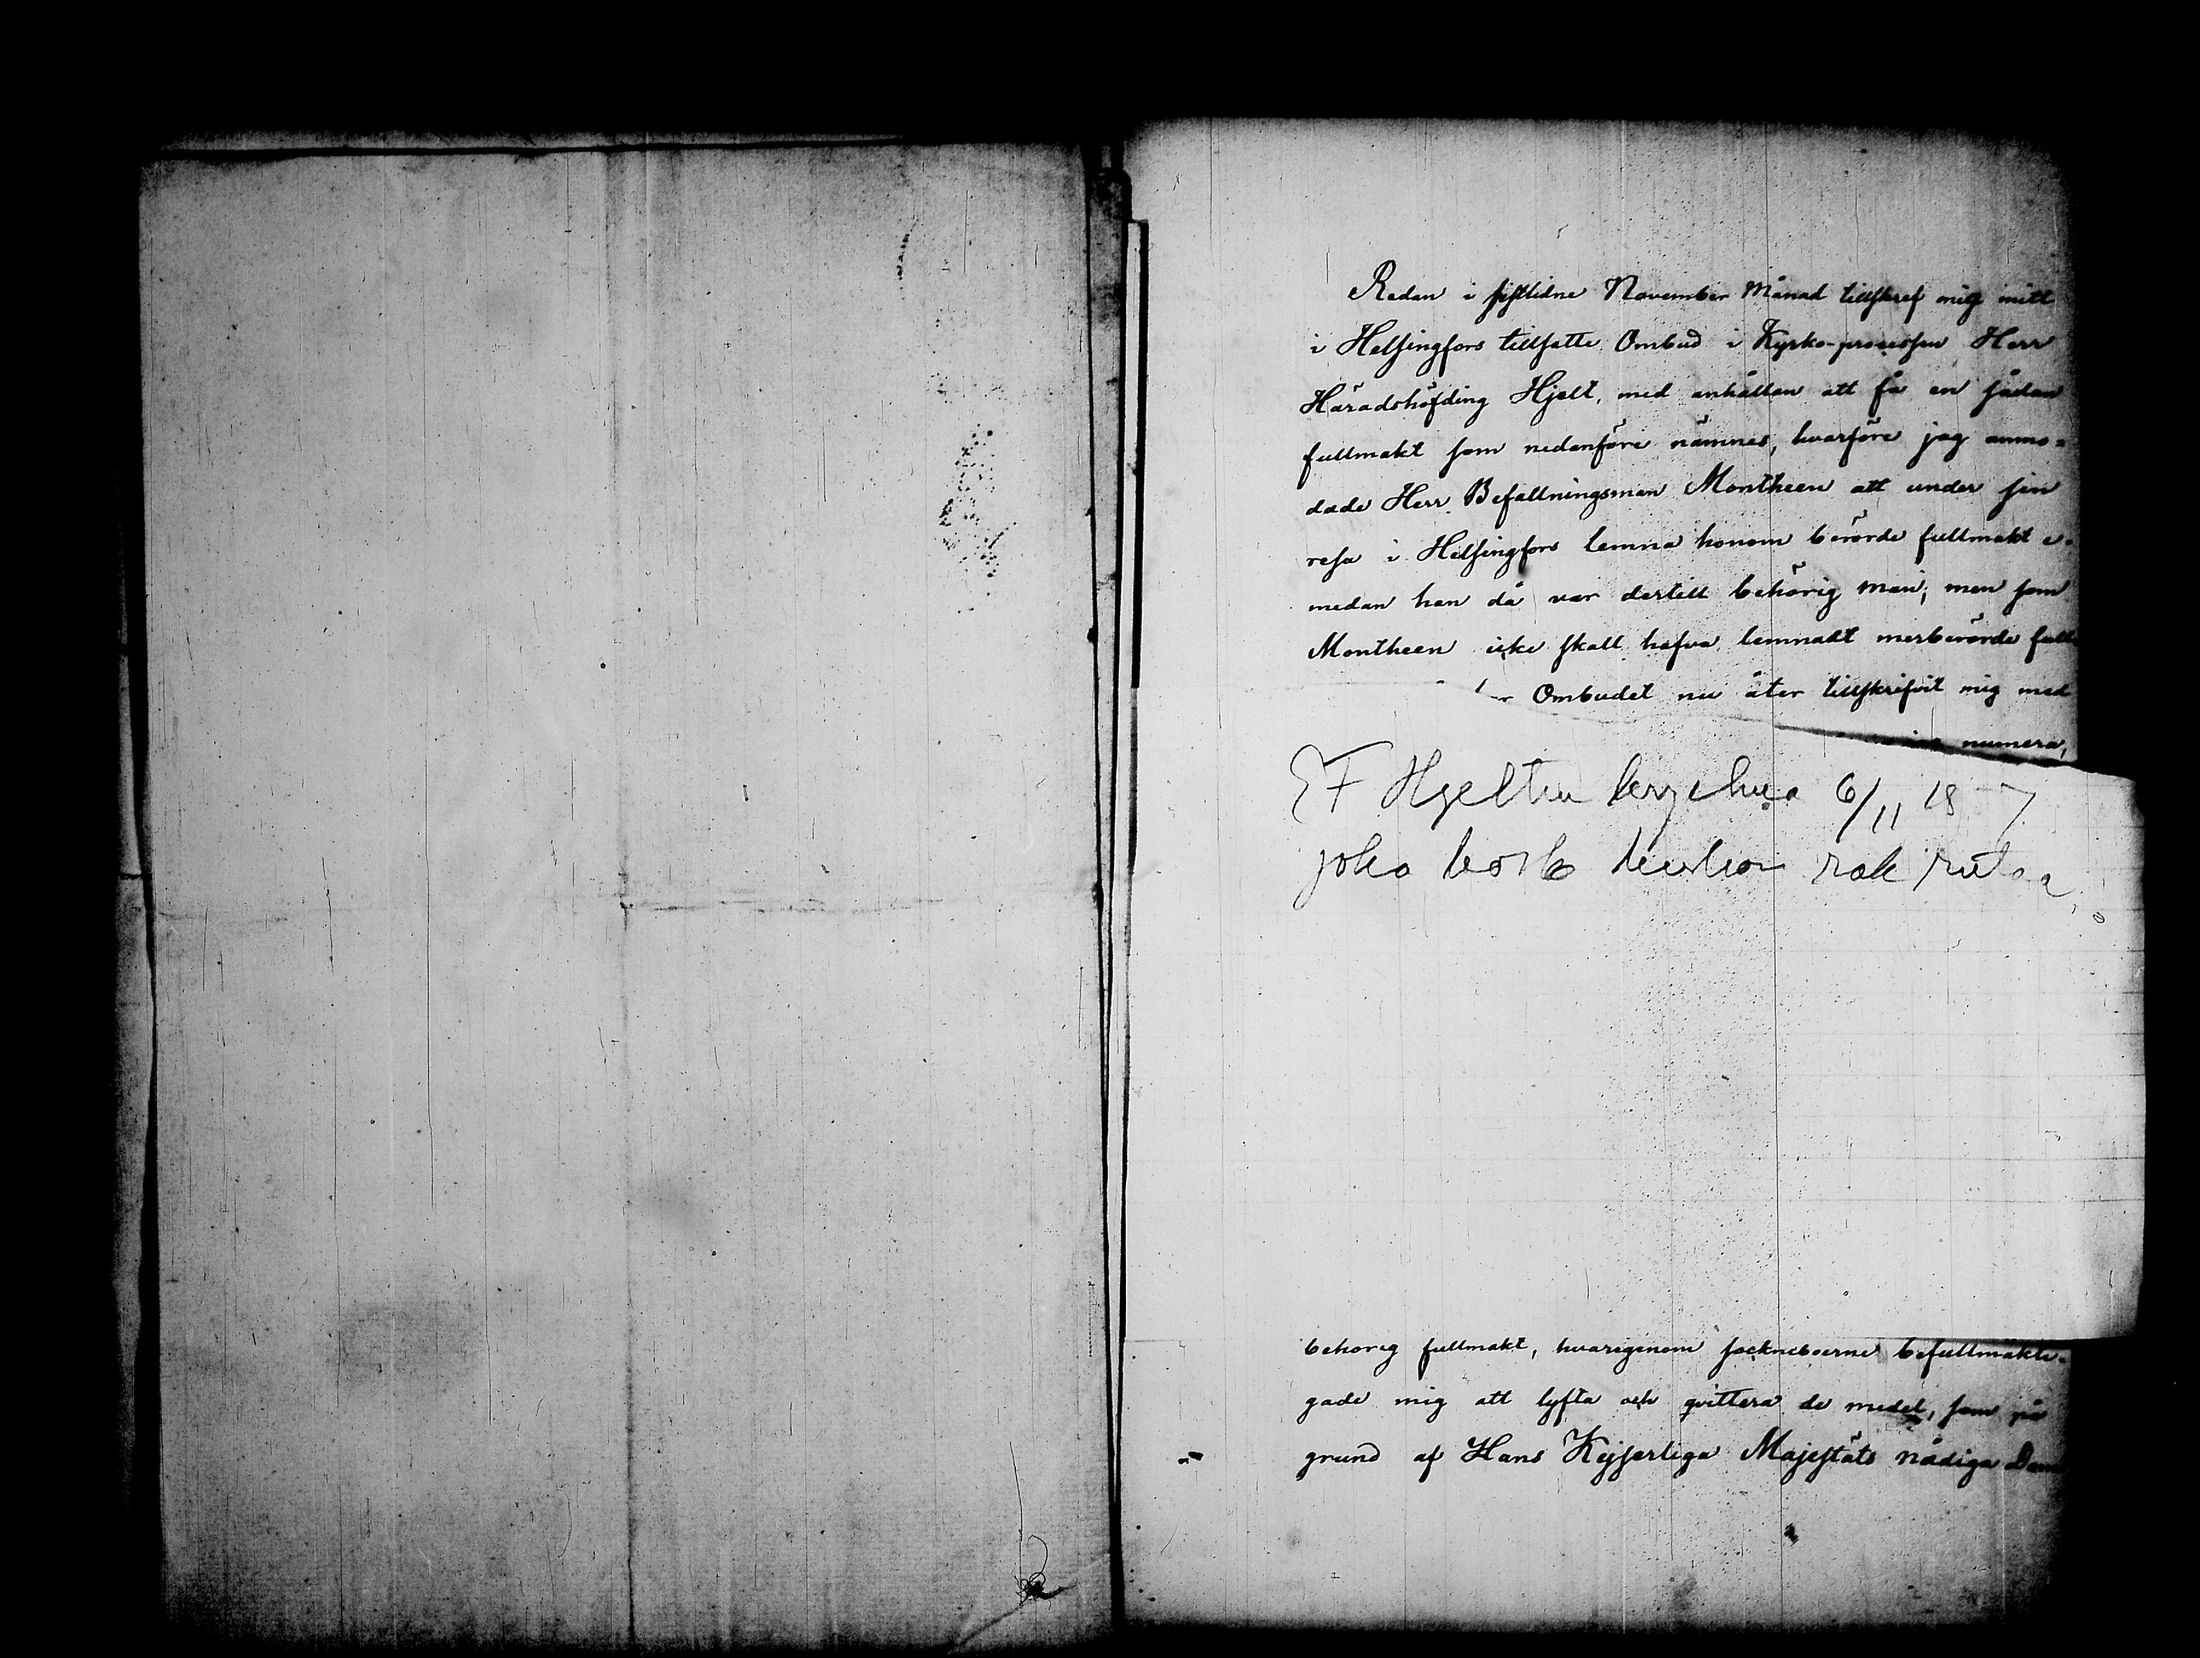 Redan i sistlidne November Månad tillskref mig mitt
i Helsingfors tillsatte Ombud i Kyrko-processen Herr
Häradshöfding Hjelt, med anhållan att få en sådan
fullmakt som nedanföre nämnes, hvarföre jag anmo=
dade Herr Befallningsman Montheen att under sin
resa i Helsingfors lemna honom berörde fullmakt e=
medan han då var dertill behörig man; men som
Montheen icke skall hafva lemnadt merberörde full
Ombudet nu åter tillskrifvit mig med
numera,
E F Hjeltin 6/11 18 7
joka koski
behörig fullmakt, hvarigenom sockneboerne befullmäkti=
gade mig att lyfta och qvittera de medel, som på
grund af Hans Kejserliga Majestäts nådiga Dom